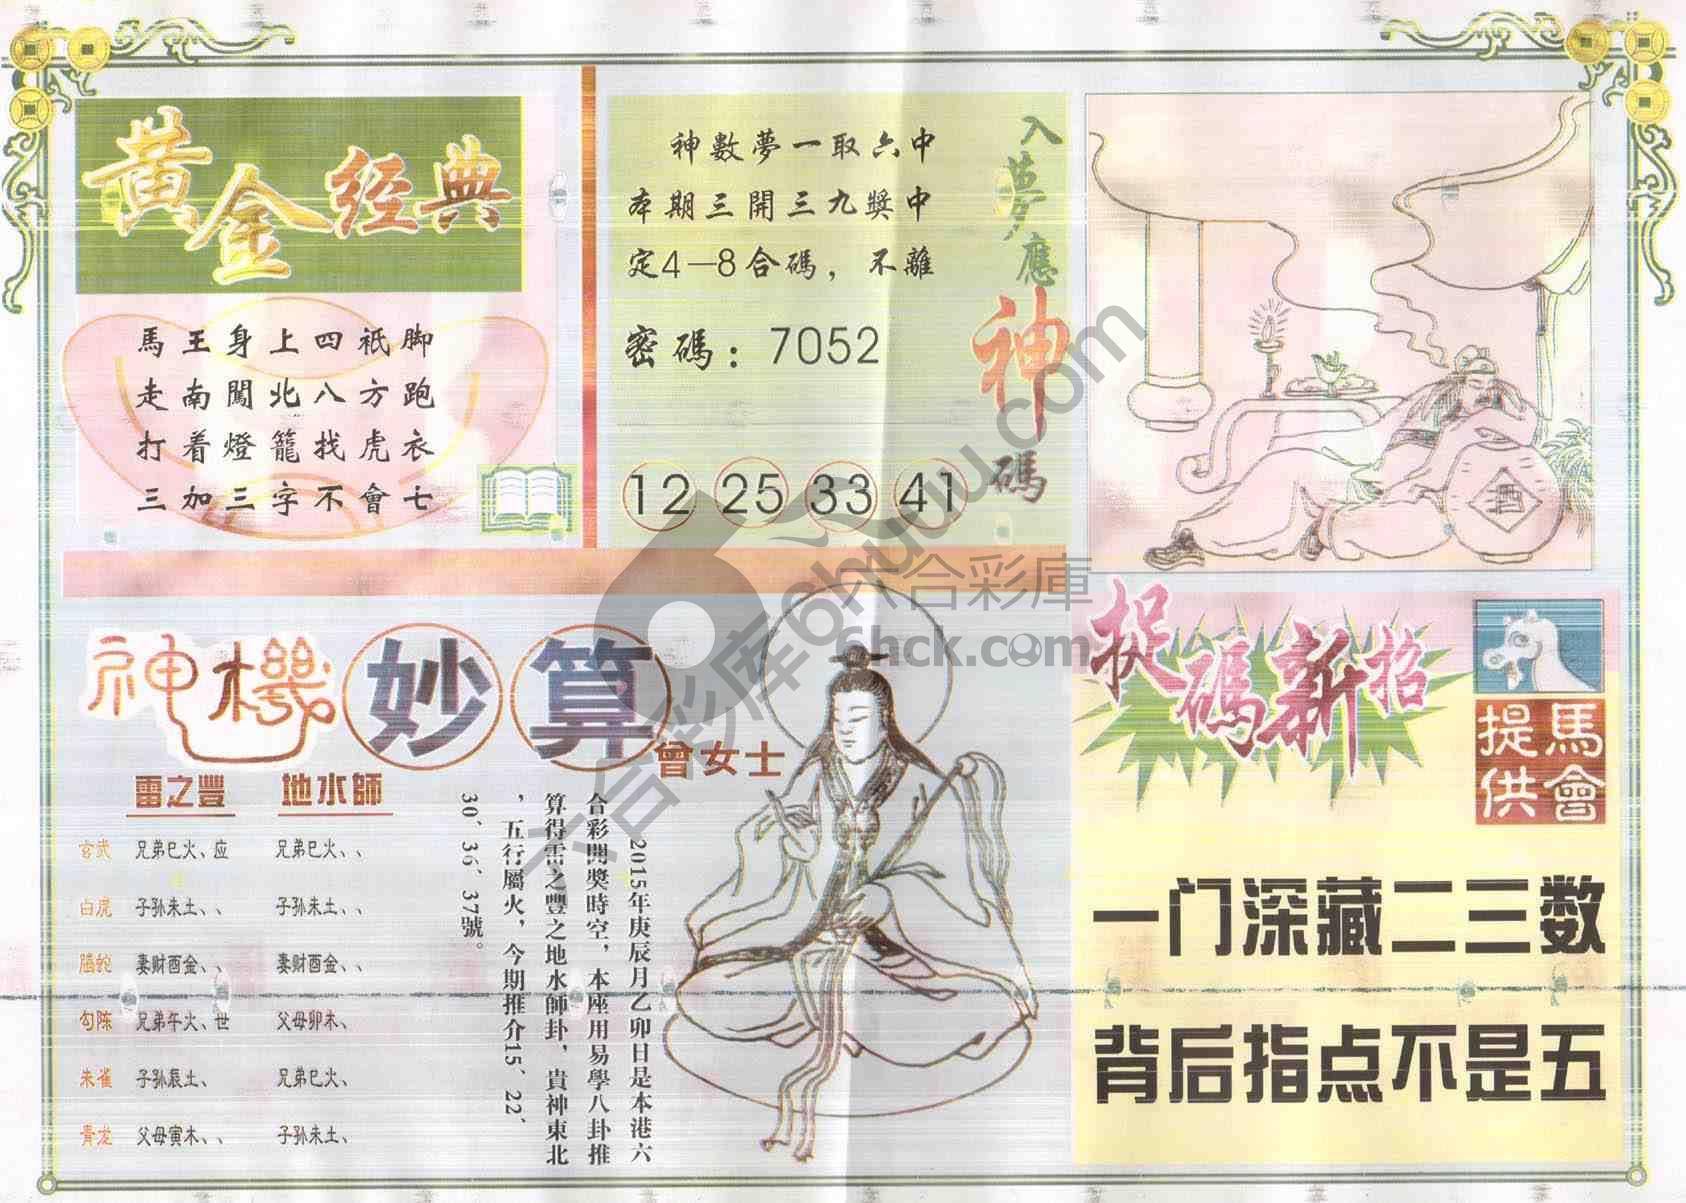 黃金經典
馬王身上四祇脚
走南闖北八方跑
打着燈籠找虎衣
三加三字不會七
入夢應神碼
神數夢一取六中
本期三開三九獎中
定4—8合碼，不離
密碼：7052
12 25 33 41
酒
神機妙算
曾女士
雷之豐 地水師
玄武 兄弟巳火、应 兄弟巳火、、
白虎 子孙未土、、 子孙未土、、
螣蛇 妻财酉金、、 妻财酉金、、
勾陈 兄弟午火、世 父母卯木、
朱雀 子孙辰土、 兄弟巳火、
青龙 父母寅木、、 子孙未土、
2015年庚辰月乙卯日是本港六
合彩開獎時空，本座用易學八卦推
算得雷之豐之地水師卦，貴神東北
，五行屬火，今期推介15、22、
30、36、37號。
捉碼新招
馬會
提供
一门深藏二三数
背后指点不是五
六合彩库6huku.com
六合彩庫
6hck.com